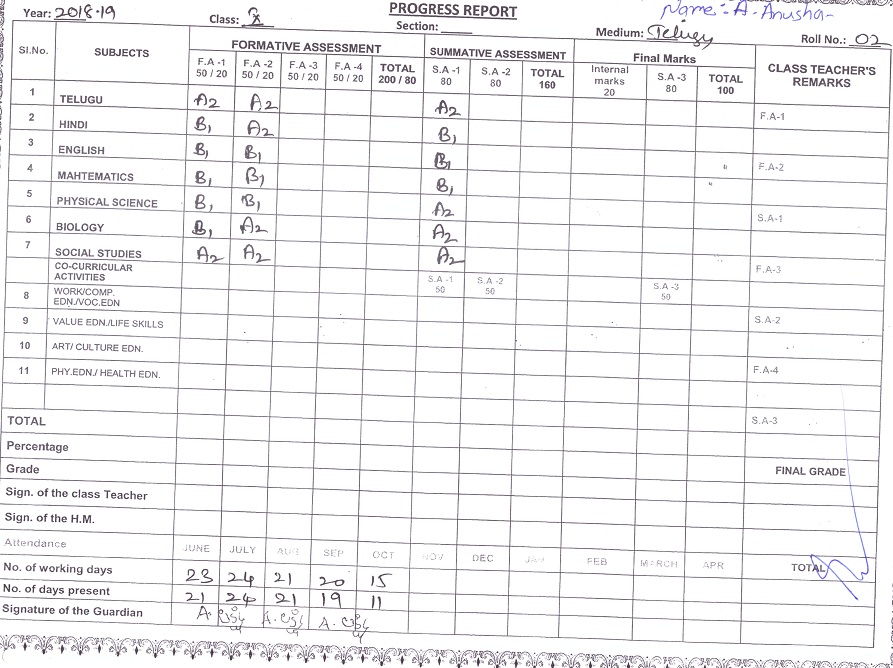 Year: 2018-19 Class: X PROGRESS REPORT Name :- A. Anusha-
Section: Medium: Telugu Roll No.: 02
Sl.No. SUBJECTS FORMATIVE ASSESSMENT SUMMATIVE ASSESSMENT Final Marks CLASS TEACHER'S REMARKS
F.A -1 50 / 20 F.A -2 50 / 20 F.A -3 50 / 20 F.A -4 50 / 20 TOTAL 200 / 80 S.A -1 80 S.A -2 80 TOTAL 160 Internal marks 20 S.A -3 80 TOTAL 100
1 TELUGU A2 A2 A2 F.A-1
2 HINDI B1 A2 B1
3 ENGLISH B1 B1 B1 F.A-2
4 MAHTEMATICS B1 B1 B1
5 PHYSICAL SCIENCE B1 B1 A2 S.A-1
6 BIOLOGY B1 A2 A2
7 SOCIAL STUDIES A2 A2 A2 F.A-3
CO-CURRICULAR ACTIVITIES S.A -1 50 S.A -2 50 S.A -3 50
8 WORK/COMP. EDN./VOC.EDN
9 VALUE EDN./LIFE SKILLS S.A-2
10 ART/ CULTURE EDN.
11 PHY.EDN./ HEALTH EDN. F.A-4
TOTAL S.A-3
Percentage
Grade FINAL GRADE
Sign. of the class Teacher
Sign. of the H.M.
Attendance JUNE JULY AUG SEP OCT NOV DEC JAN FEB MARCH APR TOTAL
No. of working days 23 24 21 20 15
No. of days present 21 24 21 19 11
Signature of the Guardian A. A. A.